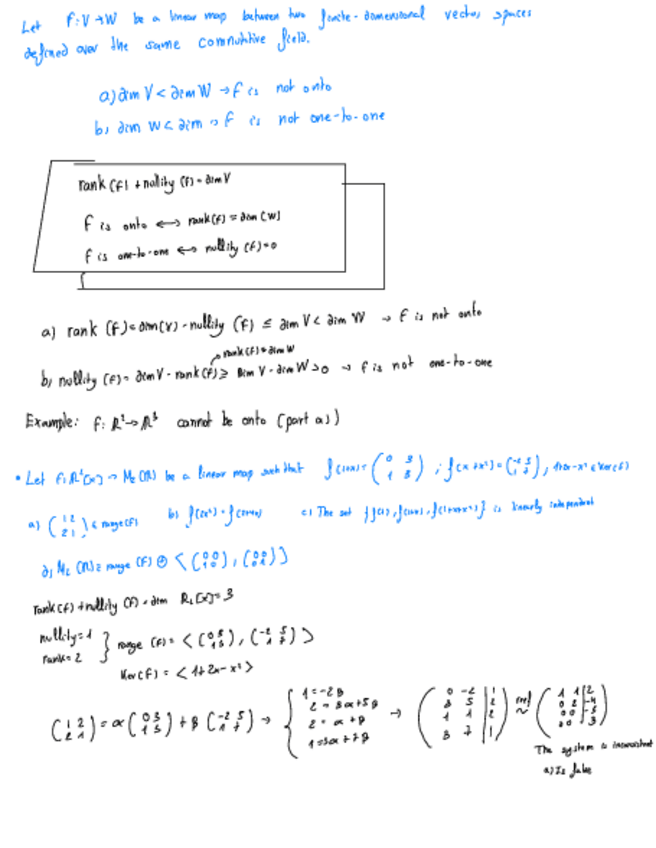 Let f: V → W be a linear map between two finite-dimensional vector spaces
defined over the same commutative field.
a) dim V < dim W → f is not onto
b) dim W < dim → f is not one-to-one
rank (f) + nullity (f) = dim V
f is onto ⟷ rank(f) = dim (W)
f is one-to-one ⟷ nullity (f) = 0
a) rank (f) = dim(V) - nullity (f) ≤ dim V < dim W → f is not onto
rank(f) ≤ dim W
b) nullity (f) = dim V - rank(f) ≥ dim V - dim W > 0 → f is not one-to-one
Example: f: R² → R³ cannot be onto (part a))
• Let f: R²[x] → M₂(R) be a linear map such that f(1+x) = (0 3; 1 3) ; f(x+x²) = (-2 5; 1 7), 1+2x-x² ∈ Ker(f)
a) (1 2; 2 1) ∈ range(f) b) f(2x²) = f(2+4x) c) The set {f(1), f(1+x), f(1+x+x²)} is linearly independent
d) M₂(R) = range (f) ⊕ <(0 0; 1 0), (0 0; 0 1)>
rank(f) + nullity (f) = dim R₂[x] = 3
nullity = 1
rank = 2 } range (f) = <(0 3; 1 3), (-2 5; 1 7)>
Ker(f) = <1+2x-x²>
(1 2; 2 1) = α(0 3; 1 3) + β(-2 5; 1 7) → { 1 = -2β
2 = 3α+5β
2 = α+β
1 = 3α+7β → (0 -2 | 1; 3 5 | 2; 1 1 | 2; 3 7 | 1) ~ (1 1 | 2; 0 2 | -4; 0 0 | -3; 0 0 | 3)
The system is inconsistent
a) Is false